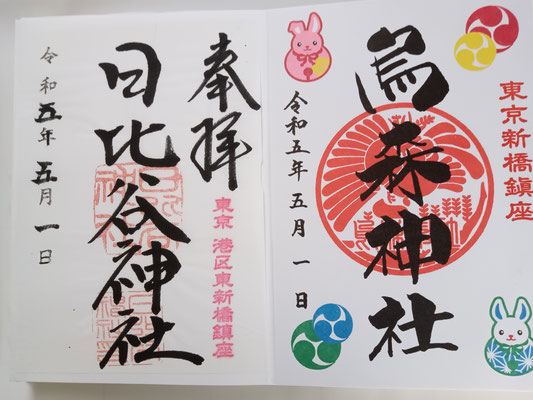 東京新橋鎮座
烏森神社
令和五年五月一日
奉拝
東京 港区東新橋鎮座
日比谷神社
令和五年五月一日